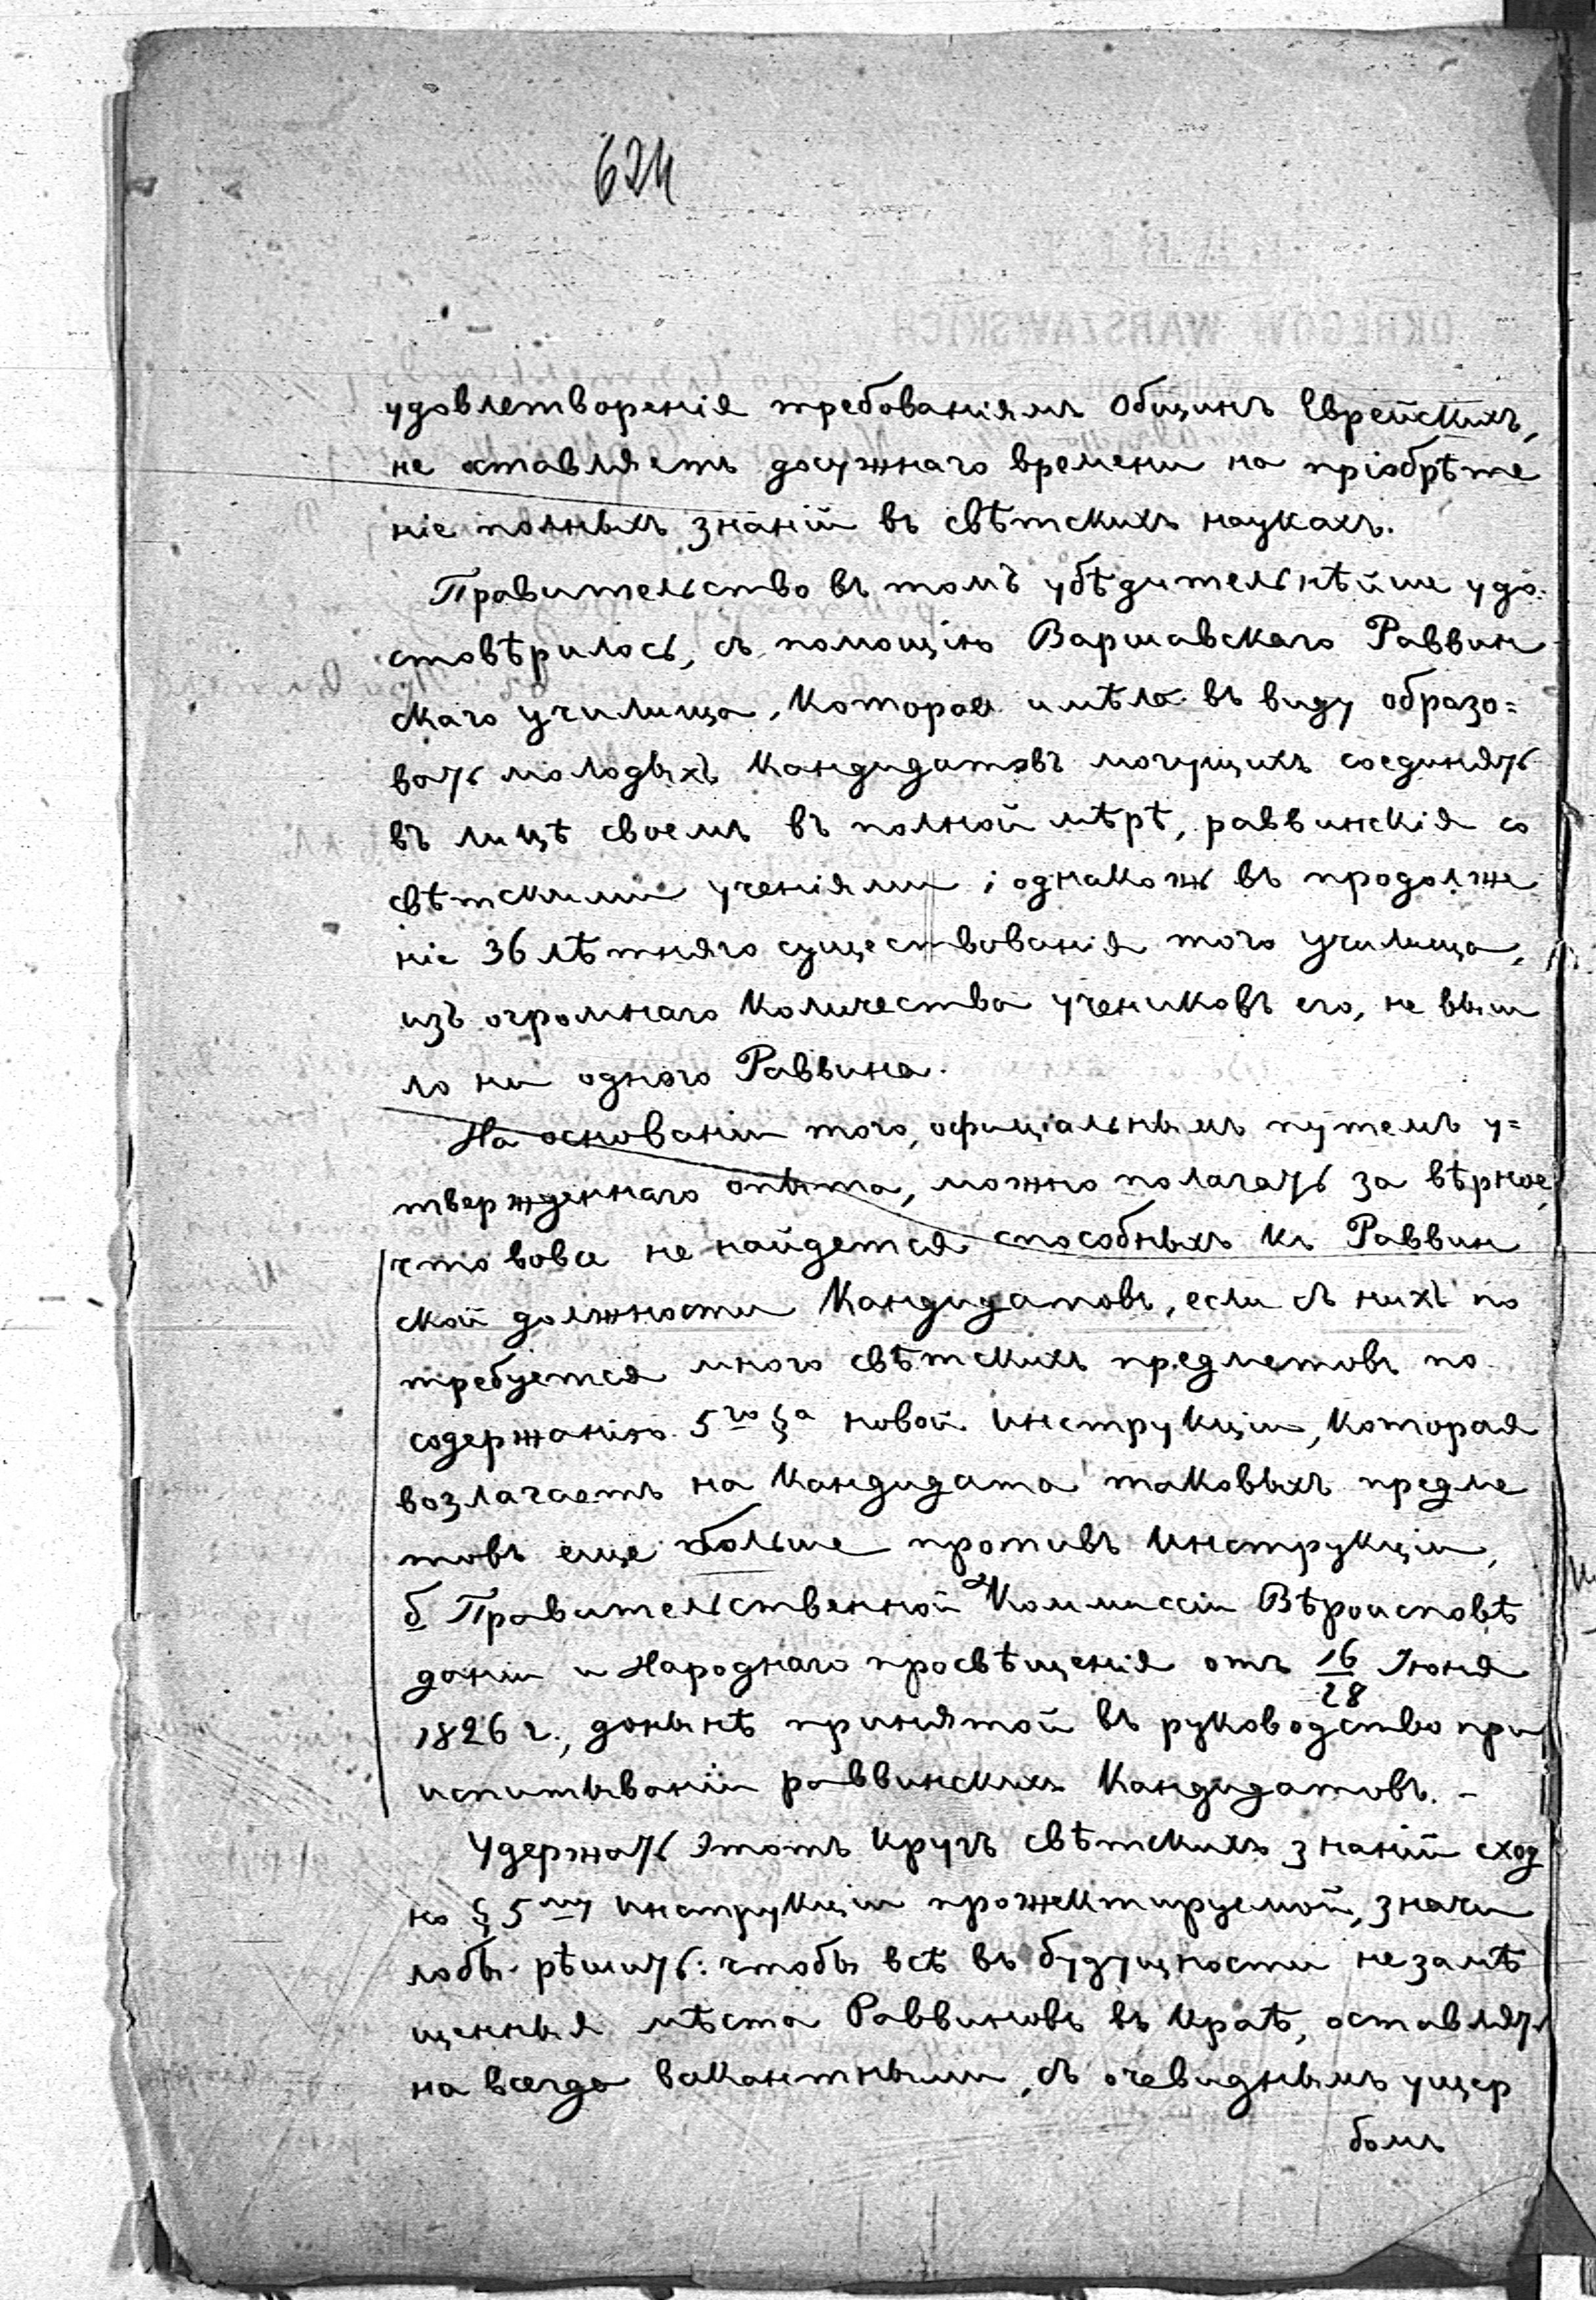 624
удовлетворенія требованіямъ Общинъ Еврейскихъ,
не оставляетъ досужнаго времени на пріобрѣте
ніе полныхъ знаній въ свѣтскихъ наукахъ.
Правительство въ томъ убѣдительнѣйше удо-
стовѣрилось, съ помощію Варшавскаго Раввин
скаго училища, которое имѣло въ виду образо=
вать молодыхъ Кандидатовъ могущихъ соединять
въ лицѣ своемъ въ полной мѣрѣ, раввинскія со
свѣтскими ученіями; однакожъ въ продолже
ніе 36 лѣтняго существованія того училища,
изъ огромнаго количества учениковъ его, не выш
ло ни одного Раввина.
На основаніи того, офиціальнымъ путемъ у=
твержденнаго опыта, можно полагать за вѣрное,
что вовсе не найдется способныхъ къ Раввин
ской должности Кандидатовъ, если съ нихъ по
требуется много свѣтскихъ предметовъ по
содержанію 5го §а новой инструкціи, которая
возлагаетъ на Кандидата таковыхъ предме
товъ еще больше противъ Инструкціи,
б. Правительственной Коммиссіи Вѣроисповѣ
даній и Народнаго просвѣщенія отъ 16/28 Іюня
1826 г., донынѣ принятой въ руководство при
испытываніи раввинскихъ Кандидатовъ. -
Удержать этотъ кругъ свѣтскихъ знаній сход
но § 5му инструкціи прожектируемой, значи
лобы рѣшить: чтобы всѣ въ будущности незамѣ
щенныя мѣста Раввиновъ въ Краѣ, оставлять
на всегда вакантными, съ очевиднымъ ущер
бомъ